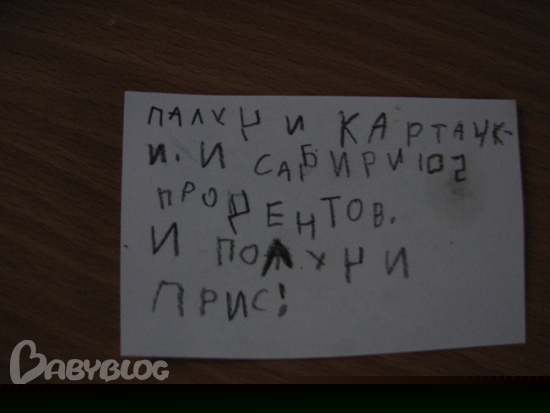 ПАЛУЧИ КАРТАЧК-
И. И САБИРИ 102
ПРОЦЕНТОВ.
И ПОЛУЧИ
ПРИС!
BABYBLOG